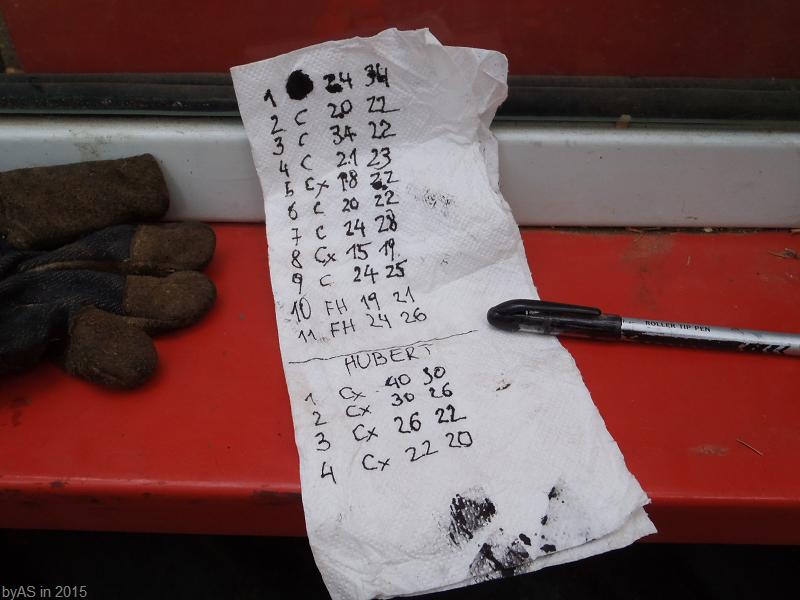 1 24 34
2 C 20 22
3 C 34 22
4 C 21 23
5 Cx 18 22
6 C 20 22
7 C 24 28
8 Cx 15 19
9 C 24 25
10 FH 19 21
11 FH 24 26
HUBERT
1 Cx 40 30
2 Cx 30 26
3 Cx 26 22
4 Cx 22 20
ROLLER TIP PEN
byAS in 2015